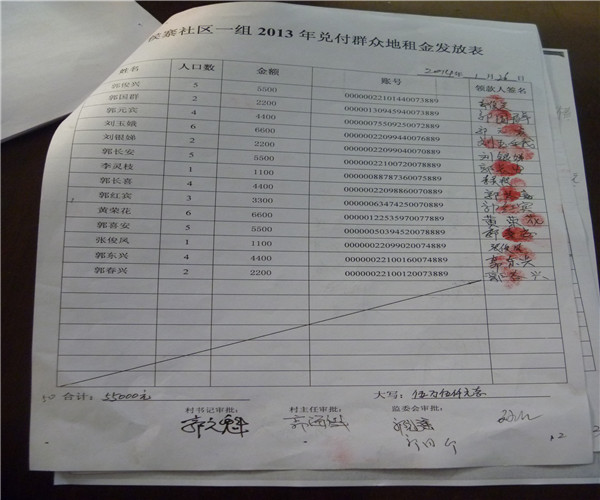 侯寨社区一组 2013 年兑付群众地租金发放表
2014年 1月26日
姓名 人口数 金额 账号 领款人签名
张俊兴 5 5500 00000022101440073889
郭国群 2 2200 00000130945940073889 郭国群
郭元宾 4 4400 00000075509250072889 郭元宾
刘玉娥 6 6600 00000022099440076889 刘玉娥
刘银娣 2 2200 00000022099040070889 刘银娣
郭长安 5 5500 00000022100720078889 郭长安
李灵枝 1 1100 00000088787360075889
郭长喜 4 4400 00000022098860070889 郭长喜
郭红宾 3 3300 00000063474250070889 郭红宾
黄荣花 6 6600 00000122535970077889 黄荣花
郭喜安 5 5500 00000050394520078889 郭喜安
张俊凤 1 1100 00000022099020074889 张俊凤
郭东兴 4 4400 00000022100160074889 郭东兴
郭春兴 2 2200 00000022100120073889 郭春兴
50 合计：55000元 大写：伍万伍仟元整
村书记审批： 村主任审批： 监委会审批：
郭文魁